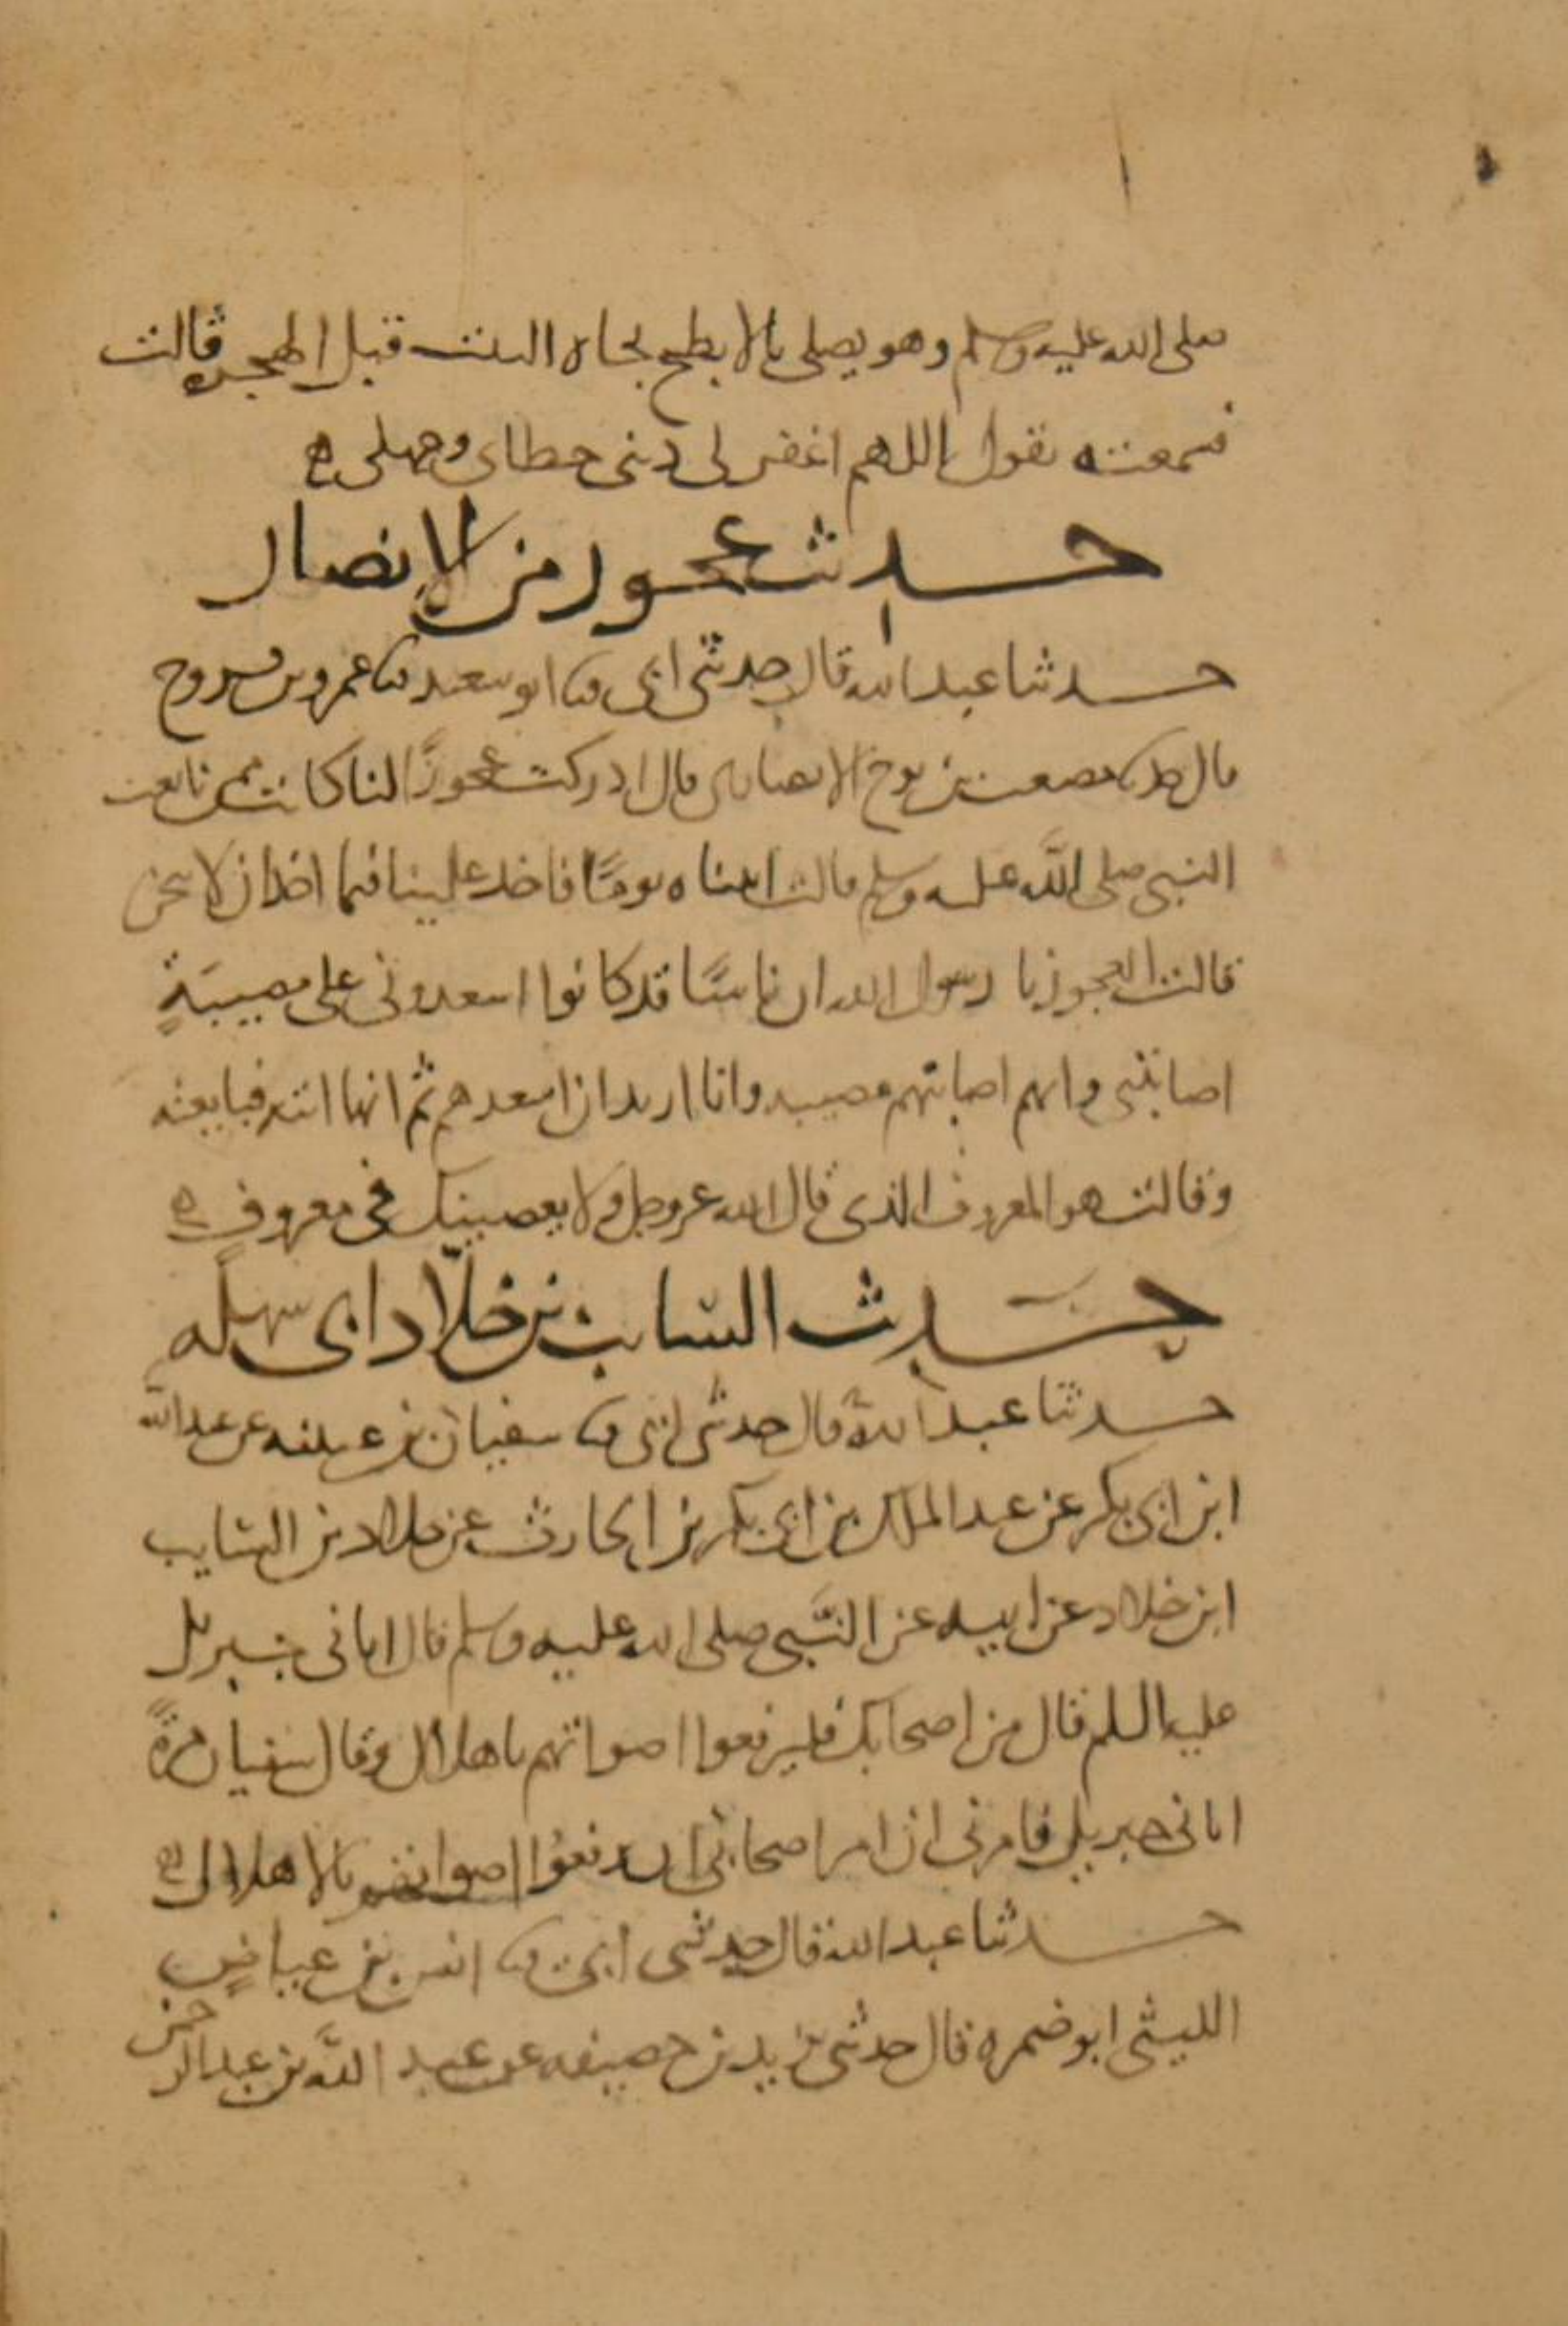 صلى الله عليه وسلم وهو يصلى بالابطح تجاه البيت قبل الهجرة قالت
فسمعته يقول اللهم اغفر لى ذنبى خطاى وجهلى ه
حديث عجوز من الانصار
حدثنا عبد الله قال حدثنى ابى ثنا ابو سعيد ثنا عمر بن فروخ
قال ثنا مصعب بن نوح الانصارى قال ادركت عجوزًا لنا كانت ممن بايعت
النبى صلى الله عليه وسلم قالت اتيناه يومًا فاخذ علينا فيما اخذ ان لا نحن
قالت العجوز يا رسول الله ان ناسًا قد كانوا اسعدونى على مصيبةٍ
اصابتنى وانهم اصابتهم مصيبه وانا اريد ان اسعدهم ثم انها اتته فبايعته
وقالت هو المعروف الذى قال الله عز وجل ولا يعصينك فى معروفٍ ه
حديث السايب بن خلاد ابى سهله
حدثنا عبد الله قال حدثنى ابى ثنا سفيان بن عيينه عن عبد الله
ابن ابى بكر عن عبد الملك بن ابى بكر بن الحارث عن خلاد بن السايب
ابن خلاد عن ابيه عن النبى صلى الله عليه وسلم قال اتانى جبريل
عليه السلم قال مر اصحابك فليرفعوا اصواتهم باهلال وقال سفيان مرةً
اتانى جبريل فامرنى ان امر اصحابى ان يرفعوا اصواتهم بالاهلال ه
حدثنا عبد الله قال حدثنى ابى ثنا انس بن عياضٍ
الليثى ابو ضمره قال حدثنى يزيد بن خصيفه عن عبد الله بن عبد الرحمن